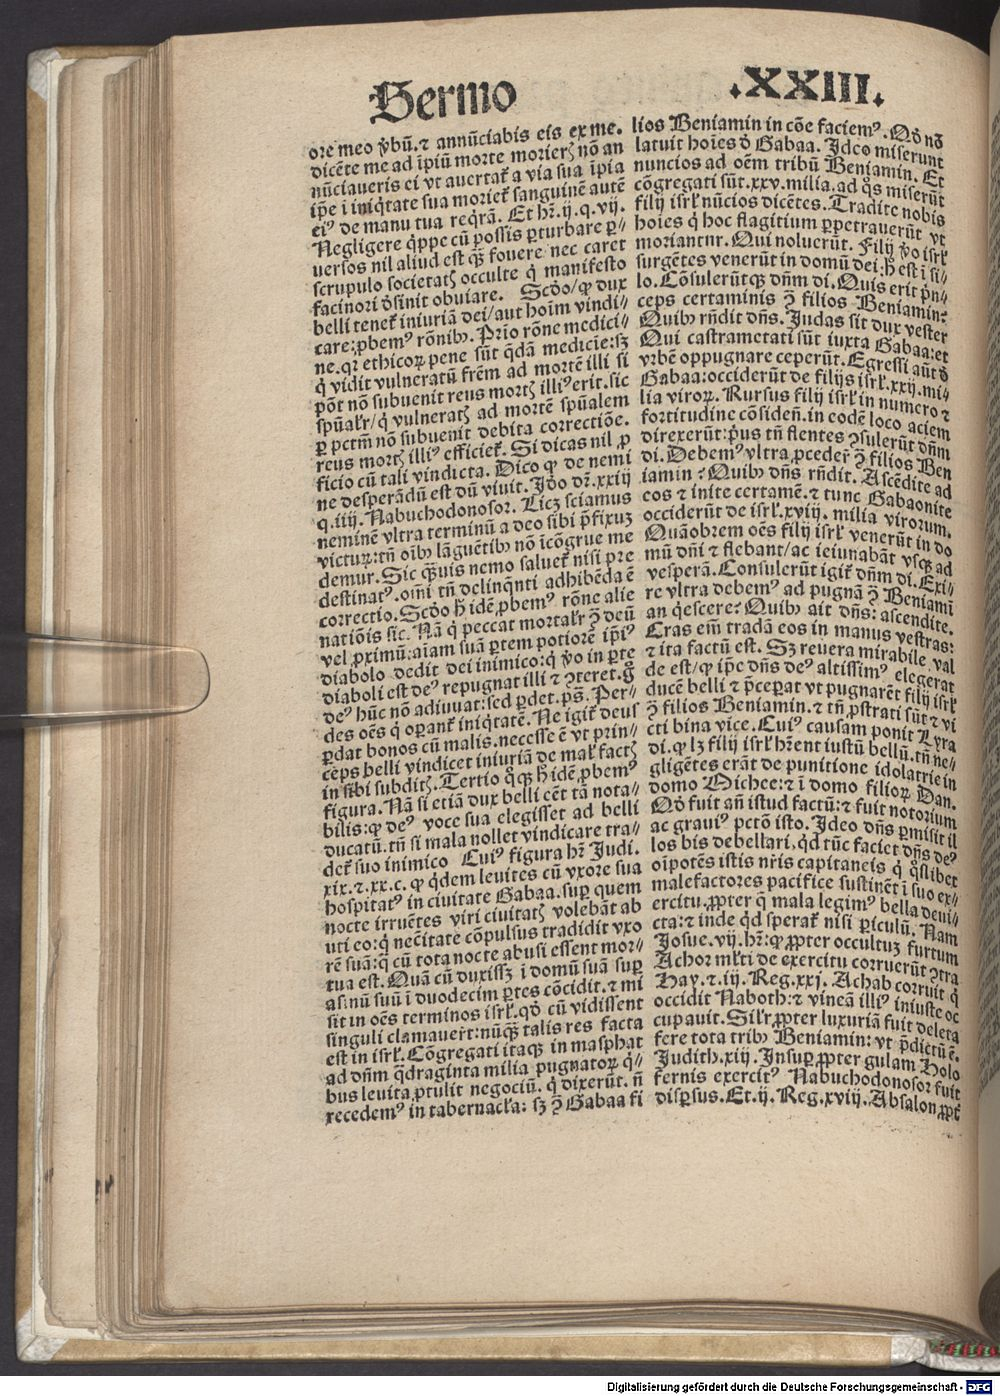 Sermo .XXIII.
ore meo v̓bū. ⁊ annūciabis eis ex me.
dicēte me ad īpiū morte morierꝭ nō an
nūciaueris ei vt auertat̄ a via sua īpia
ip̄e ī iniq̇tate sua moriet̄ sanguinē autē
eiꝰ de manu tua req̇rā. Et hr̄. ij. q. vij.
Negligere q̇ppe cū possis ꝑturbare ꝑ⸗
uersos nil aliud est qꝫ̄ fouere nec caret
scrupulo societatꝭ occulte q̇ manifesto
facinori d̓sinit obuiare. Scd̓o/ ꝙ dux
belli tenet̄ iniuriā dei/ aut hoīm vindi⸗
care: ꝓbemꝰ rōnibꝰ. Prīo rōne medici⸗
ne. qr̄ ethicoꝝ pene sūt q̇dā medicīe: sꝫ
q̇ vidit vulneratū frēm ad mortē illi si
pōt nō subuenit reus mortꝭ illiꝰ erit. sic
spūalr̄/ q̇ vulneratꝭ ad mortē spūalem
ꝑ pctm̄ nō subuenit debita correctiōe.
reus mortꝭ illiꝰ efficiet̄. Si dicas nil ꝓ
ficio cū tali vindicta. Dico ꝙ de nemi
ne desperādū est dū viuit. Id̓o dr̄. xxiij
q. iiij. Nabuchodonosor. Licꝫ sciamus
neminē vltra terminū a deo sibi p̄fixuꝫ
victuꝝ: tn̄ oībꝰ lāguētibꝰ nō īcōgrue me
demur. Sic qꝫ̄uis nemo saluet̄ nisi pre
destinatꝰ. oīni tn̄ delinq̄nti adhibēda ē
correctio. Scd̓o h̓ idē ꝓbemꝰ rōne alie
natiōis sic. Nā q̇ peccat mortalr̄ ꝯ̄ deū
vel ꝓximū: aīam suā ꝑtem potiorē ip̄iꝰ
diabolo dedit dei inimico: q̇ v̓o in ꝑte
diaboli est deꝰ repugnat illi ⁊ ꝯteret. g̊
deꝰ hūc nō adiuuat: sed ꝑdet. ps̄. Per⸗
des oēs q̇ oꝑant̄ iniq̇tatē. Ne igit̄ deus
ꝑdat bonos cū malis. necesse ē vt prin⸗
ceps belli vindicet iniuriā de mal̄ factꝭ
in sibi subditꝭ. Tertio q̊qꝫ h̓ idē ꝓbemꝰ
figura. Nā si etiā dux belli cēt tā nota⸗
bilis: ꝙ deꝰ voce sua elegisset ad belli
ducatū. tn̄ si mala nollet vindicare tra⸗
det̄ suo inimico Cuiꝰ figura hr̄ Judi.
xix. ⁊. xx. c. ꝙ q̇dem leuites cū vxore sua
hospitatꝰ in ciuitate Gabaa. suꝑ quem
nocte irruētes viri ciuitatꝭ volebāt ab
uti eo: q̇ necītate cōpulsus tradidit vxo
rē suā: q̄ cū tota nocte abusi essent mor⸗
tua est. Quā cū duxissꝫ ī domū suā suꝑ
asinū suū ī duodecim ꝑtes cōcidit. ⁊ mi
sit in oēs terminos isrl̄. qd̓ cū vidissent
singuli clamauer̄t: nūqꝫ̄ talis res facta
est in isrl̄. Cōgregati itaqꝫ in masphat
ad dn̄m q̇draginta milia pugnatoꝝ q̇⸗
bus leuita ꝓtulit negociū. q̇ dixerūt. n̄
recedemꝰ in tabernacl̄a: sꝫ ꝯ̄ Gabaa fi
lios Beniamin in cōe faciemꝰ. Qd̓ nō
latuit hoīes d̓ Gabaa. Ideo miserunt
nuncios ad oēm tribū Beniamin. Et
cōgregati sūt. xxv. milia. ad q̊s miserūt
filij isrl̄ nūcios dicētes. Tradite nobis
hoīes q̇ hoc flagitium ꝑpetrauerūt vt
moriantur. Qui noluerūt. Filij v̓o isrl̄
surgētes venerūt in domū dei: h̓ est ī si⸗
lo. Cōsulerūtqꝫ dn̄m di. Quis erit p̓n⸗
ceps certaminis ꝯ̄ filios Beniamin?
Quibꝰ rn̄dit dn̄s. Judas sit dux vester
Qui castrametati sūt iuxta Gabaa: et
vrbē oppugnare ceperūt. Egressi aūt d̓
Gabaa: occiderūt de filijs isrl̄. xxij. mi⸗
lia viroꝝ. Rursus filij isrl̄ in numero ⁊
fortitudine cōsiden̄. in eodē loco aciem
direxerūt: pͥus tn̄ flentes ꝯsulerūt dn̄m
di. Debemꝰ vltra ꝓceder̄ ꝯ̄ filios Ben
iamin? Quibꝰ dn̄s rn̄dit. Ascēdite ad
eos ⁊ inite certamē. ⁊ tunc Gabaonite
occiderūt de isrl̄. xviij. milia virorum.
Quāobrem oēs filij isrl̄ venerūt in do
mū dn̄i ⁊ flebant/ ac ieiunabāt vsqꝫ ad
vesperā. Consulerūt igit̄ dn̄m di. Exi⸗
re vltra debemꝰ ad pugnā ꝯ̄ Beniamī
an q̇escere? Quibꝰ ait dn̄s: ascendite.
Cras em̄ tradā eos in manus vestras:
⁊ ita factū est. Sꝫ reuera mirabile val
de est/ ꝙ ip̄e dn̄s deꝰ altissimꝰ elegerat
ducē belli ⁊ p̄ceperat vt pugnarēt filij isrl̄
ꝯ̄ filios Beniamin. ⁊ tn̄ ꝓstrati sūt ⁊ vi
cti bina vice. Cuiꝰ causam ponit Lyra
di. ꝙ lꝫ filij isrl̄ hr̄ent iustū bellū. tn̄ ne⸗
gligētes erāt de punitione idolatrie in
domo Michee: ⁊ ī domo filioꝝ Dan.
Qd̓ fuit an̄ istud factū: ⁊ fuit notorium
ac grauiꝰ pctō isto. Ideo dn̄s ꝑmisit il
los bis debellari. qd̓ tūc faciet dn̄s deꝰ
oīpotēs istis nr̄is capitaneis q̇ q̊slibet
malefactores pacifice sustinēt ī suo ex⸗
ercitu. ꝓpter q̄ mala legimꝰ bella deui⸗
cta: ⁊ inde qd̓ sperat̄ nisi ꝑiculū. Nam
Josue. vij. hr̄: ꝙ ꝓpter occultuꝫ furtum
Achor ml̄ti de exercitu corruerūt ꝯtra
Hay. ⁊. iij. Reg. xxj. Achab corruit q̇
occidit Naboth: ⁊ vineā illiꝰ iniuste oc
cupauit. Silr̄ ꝓpter luxuriā fuit deleta
fere tota tribꝰ Beniamin: vt p̄dictū ē.
Judith. xij. Insuꝑ ꝓpter gulam Holo
fernis exercitꝰ Nabuchodonosor fuit
disꝑsus. Et. ij. Reg. xviij. Absalon ꝓpt̄
Digitalisierung gefördert durch die Deutsche Forschungsgemeinschaft - DFG